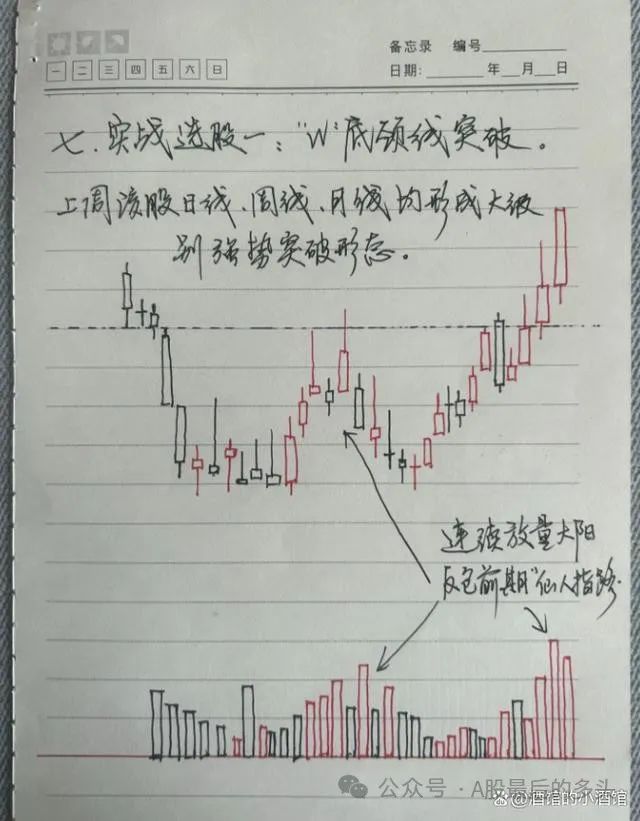 备忘录 编号
一 二 三 四 五 六 日
日期: 年 月 日
七、实战选股一:"W"底颈线突破。
上周该股日线、周线、月线均形成大级
别强势突破形态。
连续放量大阳
反包前期"仙人指路.
公众号·A股最后的多头
酒馆的小酒馆